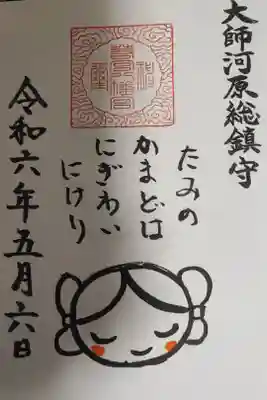 大師河原総鎮守
たみの
かまどは
にぎわい
にけり
令和六年五月六日